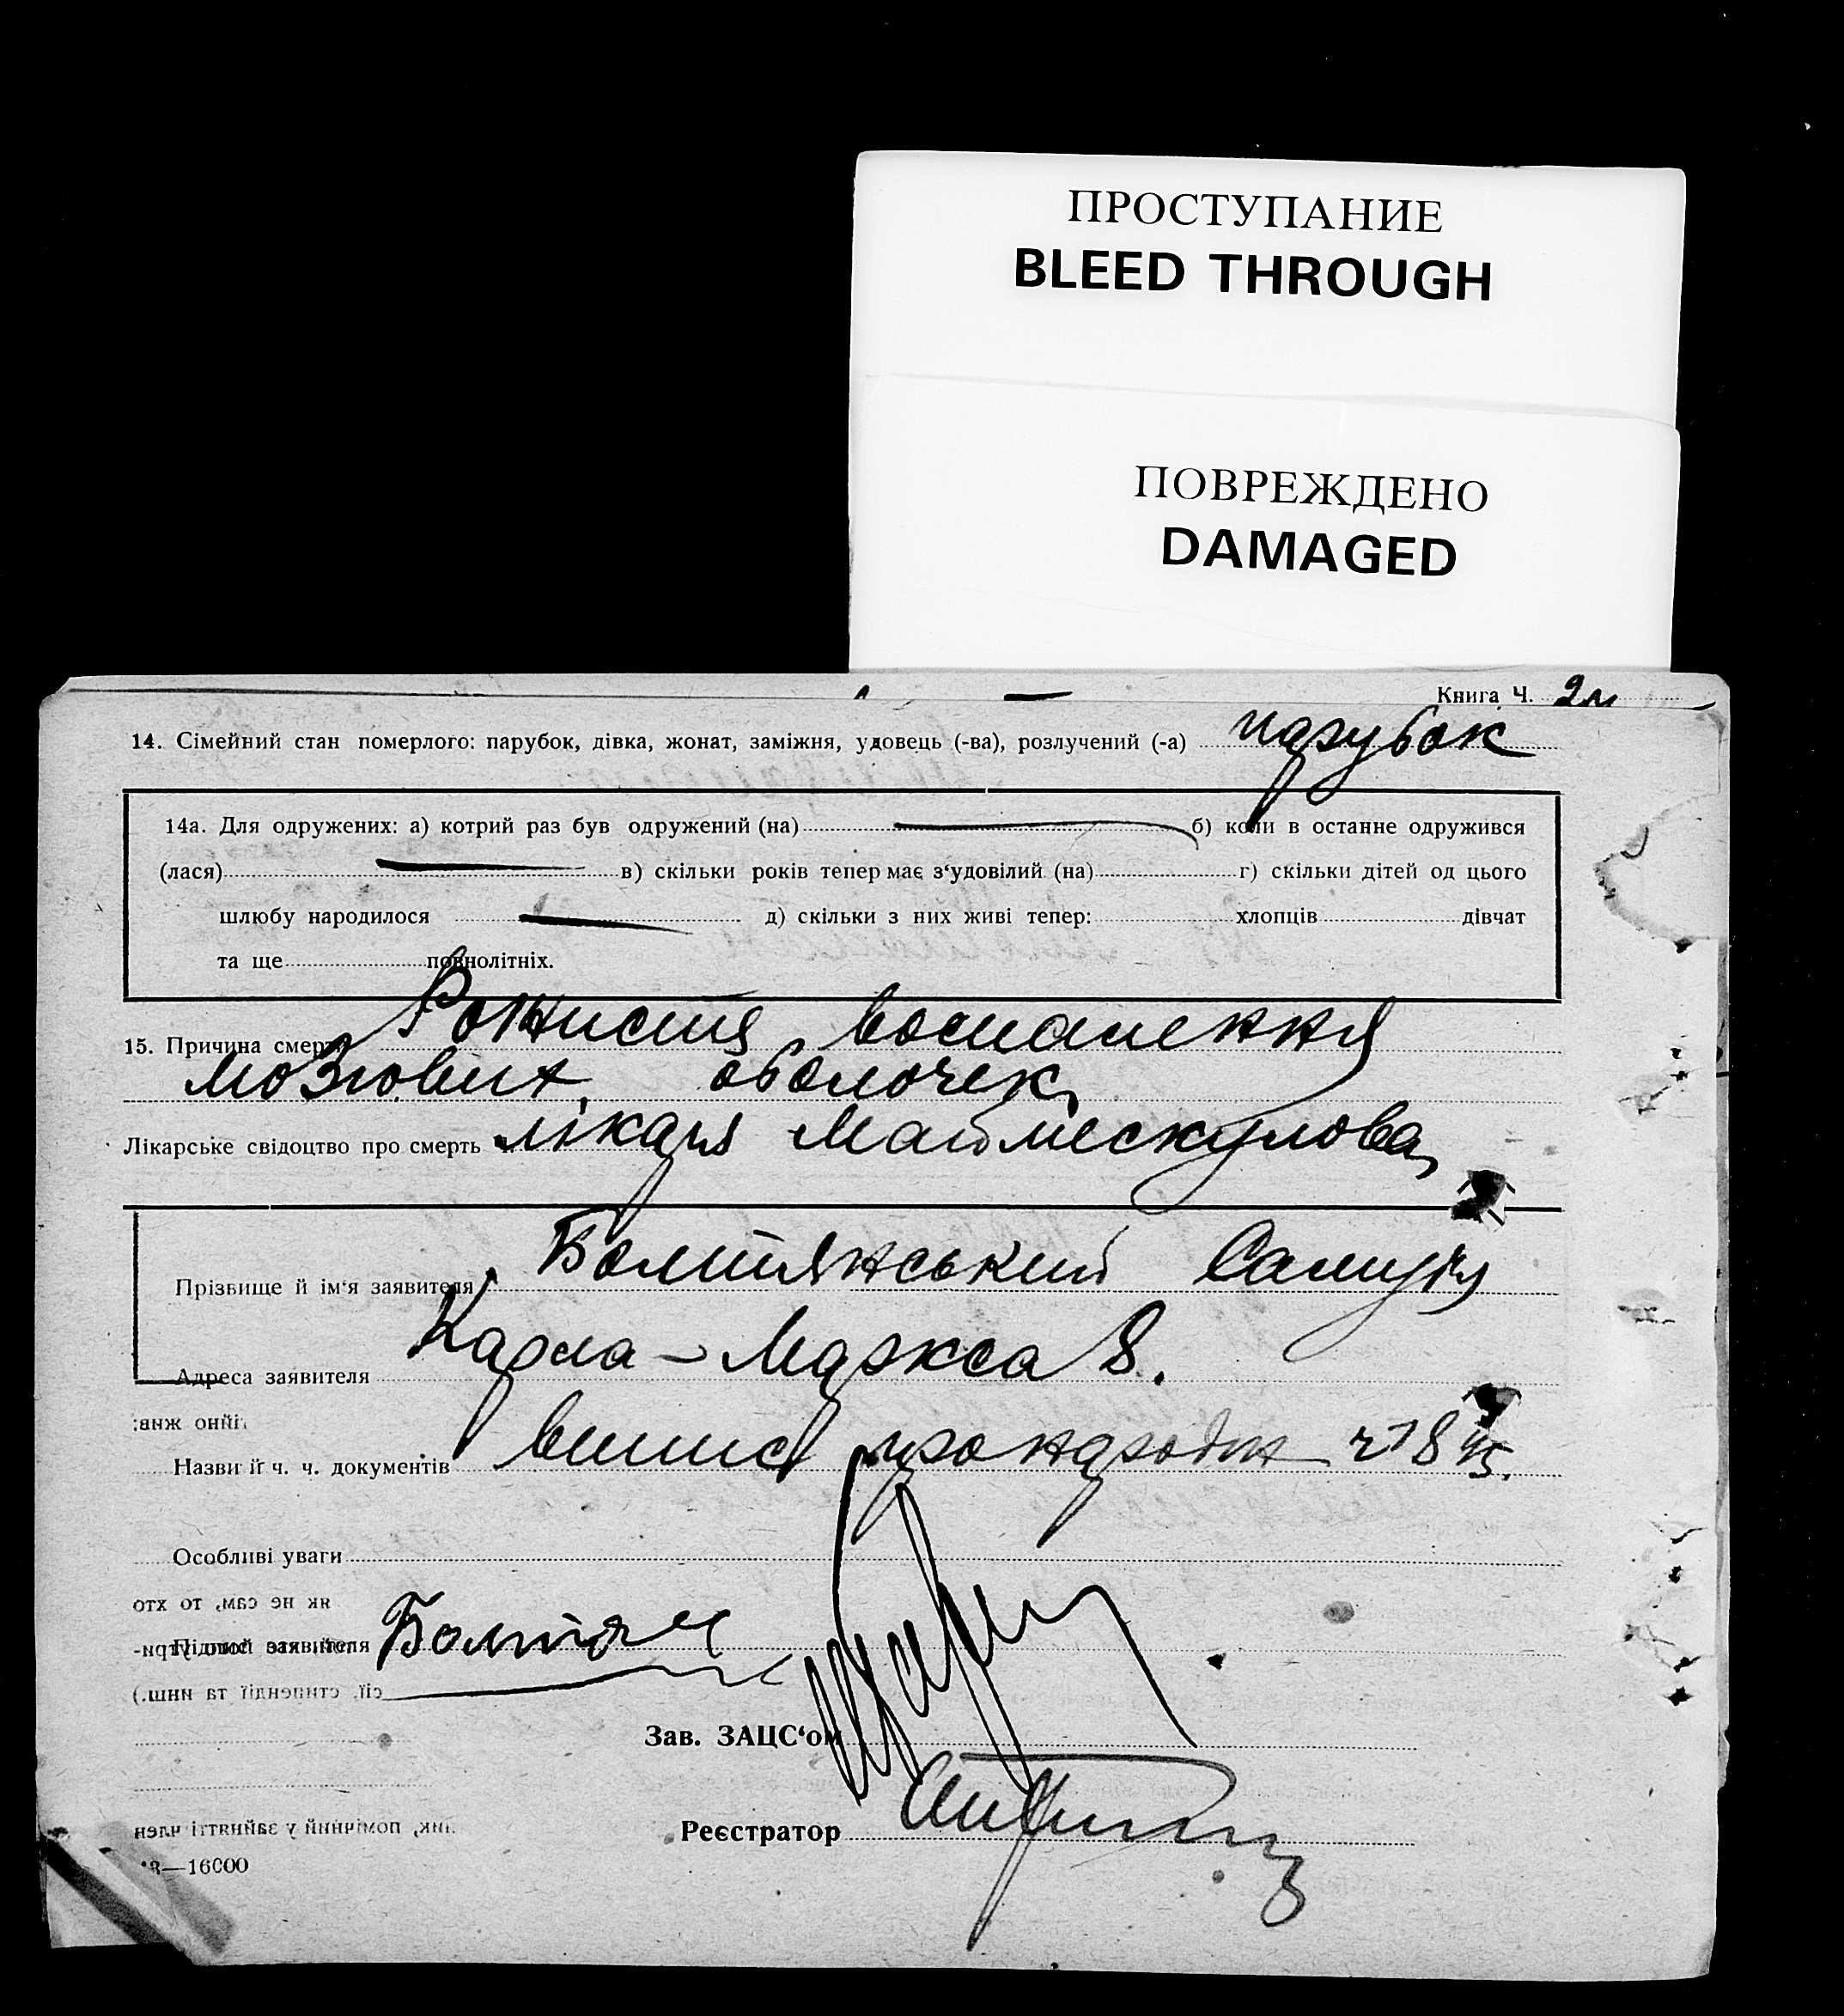 ПРОСТУПАНИЕ
BLEED THROUGH
ПОВРЕЖДЕНО
DAMAGED
Книга Ч.
14. Сімейний стан померлого: парубок, дівка, жонат, заміжня, удовець (-ва), розлучений (-а) парубок
14а. Для одружених: а) котрий раз був одружений (на) б) коли в останне одружився
(лася) в) скільки років тепер має з'удовілий (на) г) скільки дітей од цього
шлюбу народилося д) скільки з них живі тепер: хлопців дівчат
та ще повнолітніх.
15. Причина смерти воспалення
мозгових оболочек
Лікарське свідоцтво про смерть лікаря
Прізвище й ім'я заявителя Болтянський Самуїл
Адреса заявителя Карла-Маркса 8.
Назви й ч. ч. документів
Особливі уваги
як не сам, то хто
Підпис заявителя Болтян
сії, стипендії та инш.)
Зав. ЗАЦС'ом
Реєстратор
ник, помічний у зайнятті член
—16000